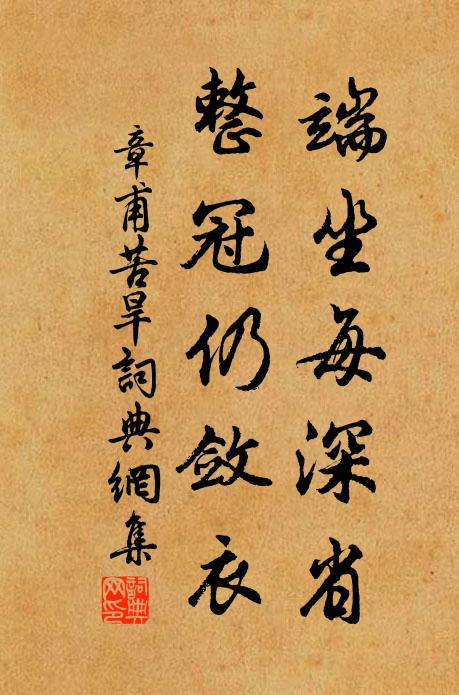 端坐每深省
整冠仍斂衣
章甫苦旱詞典網集
詞典網印